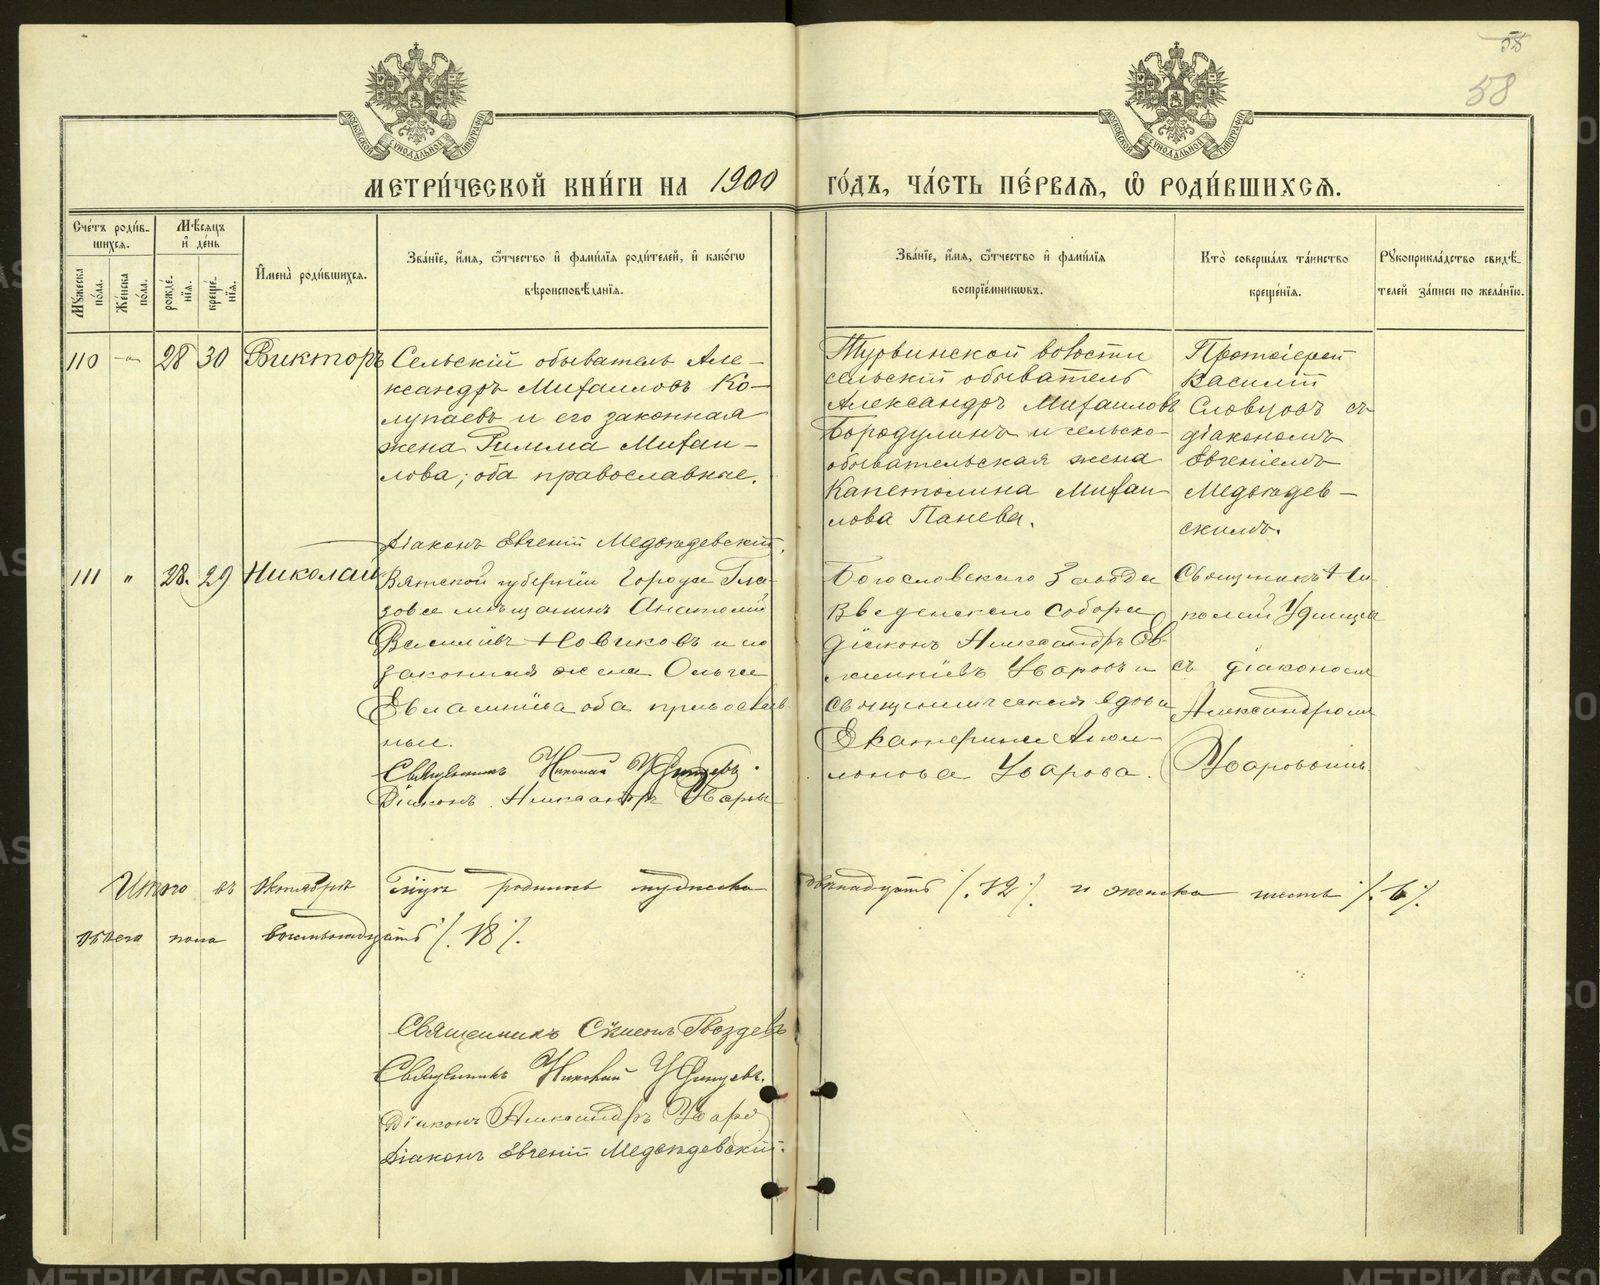 58
58
МЕТРИ́ЧЕСКОЙ КНИ́ГИ НА 1900 ГО́ДЪ, ЧА́СТЬ ПЕ́РВАЯ, Ѡ РОДИ́ВШИХСЯ.
Сче́тъ роди́в-
шихся.
Мѣ́сяцъ
и҆ де́нь
Мꙋ́жеска по́ла.
Же́нска по́ла.
рожде́-нїя.
креще́-нїя.
И҆мена̀ роди́вшихся.
Зва́нїе, и҆́мя, ѻ҆́тчество и҆ фами́лїя роди́телей, и҆ како́гѡ
вѣроисповѣ́данїя.
Зва́нїе, и҆́мя, ѻ҆́тчество и҆ фами́лїя
воспрїе́мникѡвъ.
Кто̀ соверша́лъ та́инство
креще́нїя.
Рꙋкоприкла́дство свидѣ́-
телей за́писи по жела́нїю.
110 -"- 28 30 Викторъ
Сельскій обыватель Але-
ксандръ Михаиловъ Ко-
лупаевъ и его законная
жена Римма Михаи-
лова; оба православные.
Діаконъ Евгеній Медвѣдевскій.
Турьинской волости
сельскій обыватель
Александръ Михаиловъ
Бородулинъ и сельско-
обывательская жена
Капетолина Михаи-
лова Панева.
Протоіерей
Василій
Словцовъ съ
діакономъ
Евгеніемъ
Медвѣдев-
скимъ.
111 " 28. 29 Николай
Вятской губерніи города Гла-
зова мѣщанинъ Анатолій
Васильевъ Новиковъ и его
законная жена Ольга
Евлампіева оба православ-
ные.
Священникъ Николай Удинцевъ.
Діаконъ Александръ Уваровъ
Богословскаго Завода
Введенскаго собора
діаконъ Александръ Ев-
лампіевъ Уваровъ и
священническая вдова
Екатерина Апол-
лонова Уварова.
Священникъ Ни-
колай Удинцевъ
съ діакономъ
Александромъ
Уваровымъ
Итого въ октябрѣ мѣсяцѣ родилось мужеска двѣнадцать /.12./ и женска шесть /.6./
обоего пола восемьнадцать /.18./
Священникъ Сѵмеонъ Гвоздевъ
Священникъ Николай Удинцевъ.
Діаконъ Александръ Уваро
Діаконъ Евгеній Медвѣдевскій.
METRIKI.GASO-URAL.RU